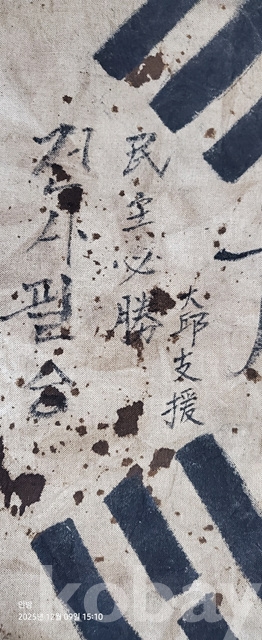 大邱支援
民黨必勝
필승
2025년 12월 09일 15:10
kobay